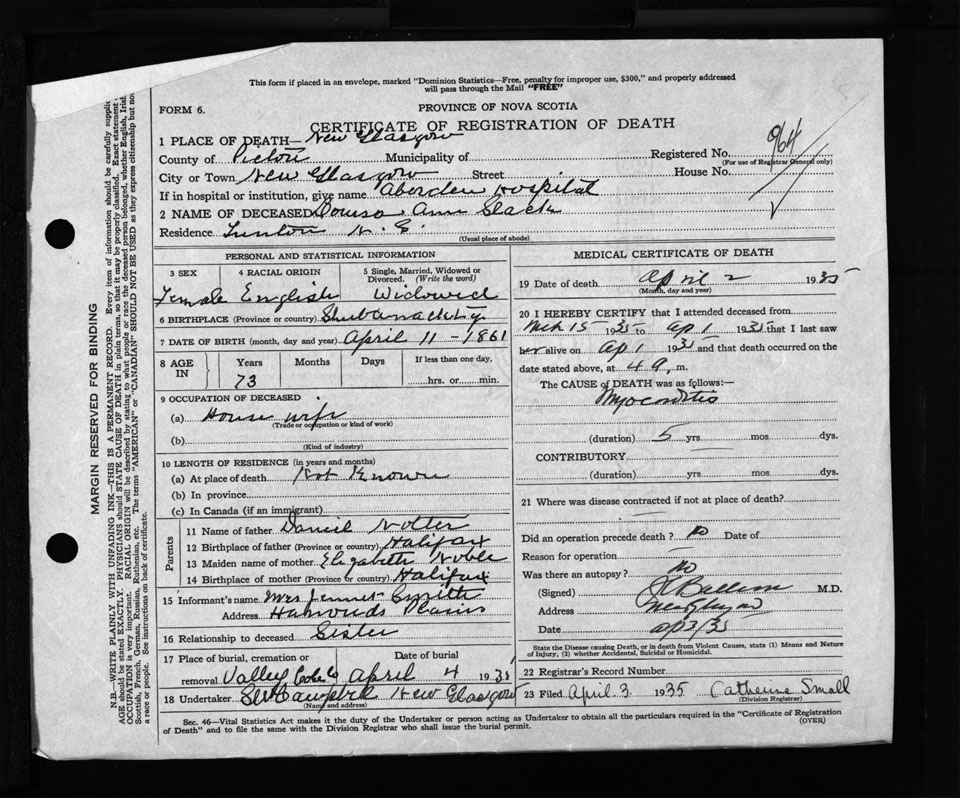 This form if placed in an envelope, marked "Dominion Statistics—Free, penalty for improper use, $300," and properly addressed
will pass through the Mail "FREE"
FORM 6.
PROVINCE OF NOVA SCOTIA
CERTIFICATE OF REGISTRATION OF DEATH
1 PLACE OF DEATH— New Glasgow
County of Pictou Municipality of Registered No. 964
(For use of Registrar General only)
City or Town New Glasgow Street House No.
If in hospital or institution, give name Aberdeen Hospital
2 NAME OF DECEASED Louisa Ann Slack
Residence N. S.
(Usual place of abode)
PERSONAL AND STATISTICAL INFORMATION
3 SEX 4 RACIAL ORIGIN 5 Single, Married, Widowed or Divorced. (Write the word)
Female English Widowed
6 BIRTHPLACE (Province or country)
7 DATE OF BIRTH (month, day and year) April 11 - 1861
8 AGE IN Years Months Days If less than one day,
73 hrs. or min.
9 OCCUPATION OF DECEASED
(a) House wife
(Trade or occupation or kind of work)
(b)
(Kind of industry)
10 LENGTH OF RESIDENCE (in years and months)
(a) At place of death Not Known
(b) In province
(c) In Canada (if an immigrant)
Parents
11 Name of father Daniel
12 Birthplace of father (Province or country) Halifax
13 Maiden name of mother Elizabeth Noble
14 Birthplace of mother (Province or country) Halifax
15 Informant's name Mrs Smith
Address Plains
16 Relationship to deceased Sister
17 Place of burial, cremation or removal Date of burial
Valley April 4 1935
18 Undertaker New Glasgow
(Name and address)
MEDICAL CERTIFICATE OF DEATH
19 Date of death April 2 1935
(Month, day and year)
20 I HEREBY CERTIFY that I attended deceased from
Mch 15 1935 to Ap 1 1935 that I last saw
her alive on Ap 1 1935 and that death occurred on the
date stated above, at 4 a. m.
The CAUSE OF DEATH was as follows:—
Myocarditis
(duration) 5 yrs mos dys.
CONTRIBUTORY
(duration) yrs. mos. dys.
21 Where was disease contracted if not at place of death?
Did an operation precede death? no Date of
Reason for operation
Was there an autopsy? no
(Signed) M.D.
Address New Glasgow
Date ap 3/35
State the Disease causing Death, or in death from Violent Causes, state (1) Means and Nature
of Injury, (2) whether Accidental, Suicidal or Homicidal.
22 Registrar's Record Number
23 Filed April 3 1935 Catherine Small
(Division Registrar)
Sec. 46—Vital Statistics Act makes it the duty of the Undertaker or person acting as Undertaker to obtain all the particulars required in the "Certificate of Registration
of Death" and to file the same with the Division Registrar who shall issue the burial permit.
(OVER)
MARGIN RESERVED FOR BINDING
N.B.—WRITE PLAINLY WITH UNFADING INK—THIS IS A PERMANENT RECORD. Every item of information should be carefully supplied.
AGE should be stated EXACTLY. PHYSICIANS should STATE CAUSE OF DEATH in plain terms, so that it may be properly classified. Exact statement of
OCCUPATION is very important. RACIAL ORIGIN will be described by stating to what people or race the deceased person belonged, whether English, Irish,
Scottish, French, German, Russian, Ruthenian, etc. The terms "AMERICAN" or "CANADIAN" SHOULD NOT BE USED as they express citizenship but not
a race or people. See instructions on back of certificate.